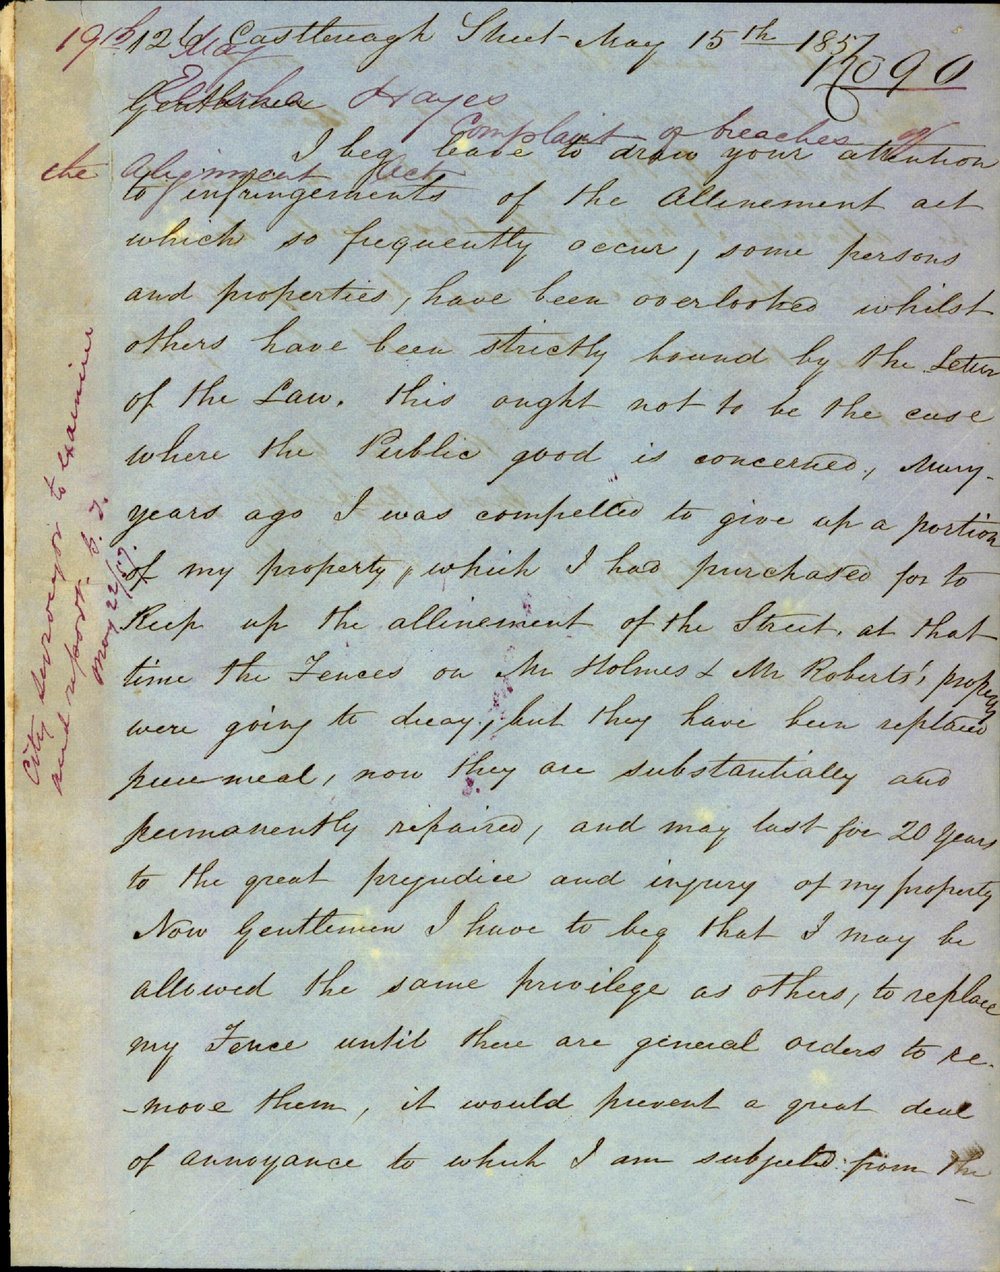 19th May
126 Castlereagh Street May 15th 1857
1090
Gentlemen
Elisha Hayes
Complaint of breaches of
the Alignment Act
I beg leave to draw your attention
to infringements of the Allinement act
which so frequently occur, some persons
and properties, have been overlooked whilst
others have been strictly bound by the Letter
of the Law. this ought not to be the case
where the Public good is concerned, Many
years ago I was compelled to give up a portion
of my property, which I had purchased for to
Keep up the allinement of the Street. at that
time the Fences on Mr Holmes & Mr Roberts' property
were going to decay, but they have been replaced
piecemeal, now they are substantially and
permanently repaired, and may last for 20 years
to the great prejudice and injury of my property
Now Gentlemen I have to beg that I may be
allowed the same privilege as others, to replace
my Fence until there are general orders to re-
-move them, it would prevent a great deal
of annoyance to which I am subjected from the
City Surveyor to examine
and report.
May 22/57.